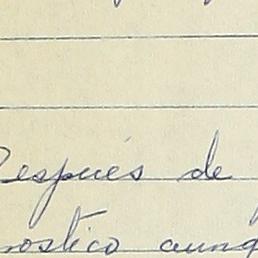 Después de
nostico aunq